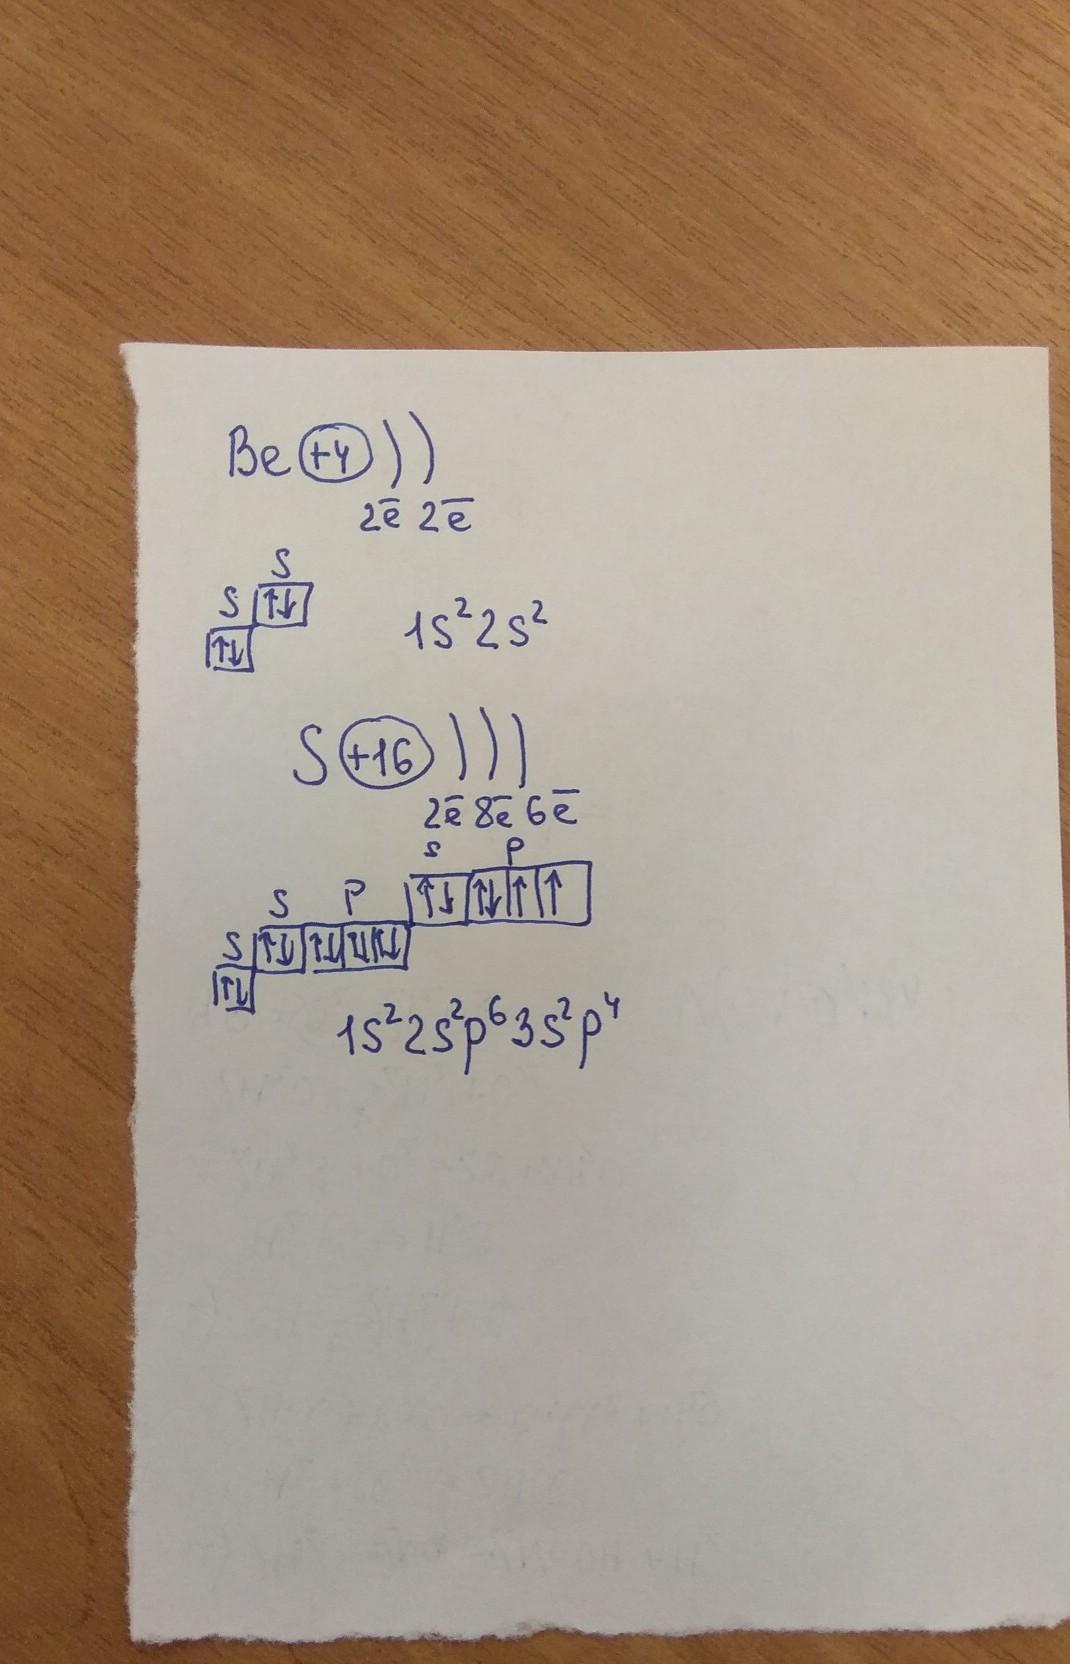 Be +4 ) )
2ē 2ē
S
S ↑↓
↑↓ 1s²2s²
S +16 ) ) )
2ē 8ē 6ē
s p
S P ↑↓ ↑↓ ↑ ↑
S ↑↓ ↑↓ ↑↓ ↑↓
↑↓
1s²2s²p⁶3s²p⁴